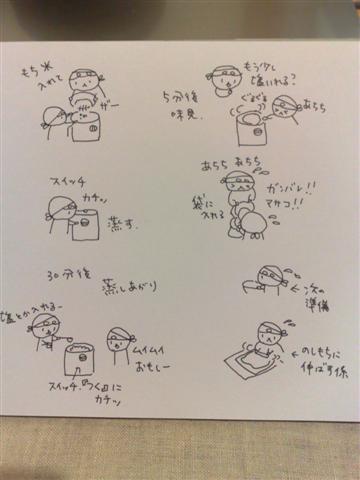 もち米
入れて
ザー
スイッチ
カチッ
蒸す.
30分後
蒸しあがり
塩とか入れるー
ムイムイ
おもしー
スイッチ.「つく」に
カチッ
5分後
味見.
もう少し
塩いれる?
ぐるぐる
あちち
あちち あちち
袋に
入れる
ガンバレ!!
マサコ!!
← 次の
準備
← のしもちに
伸ばす係